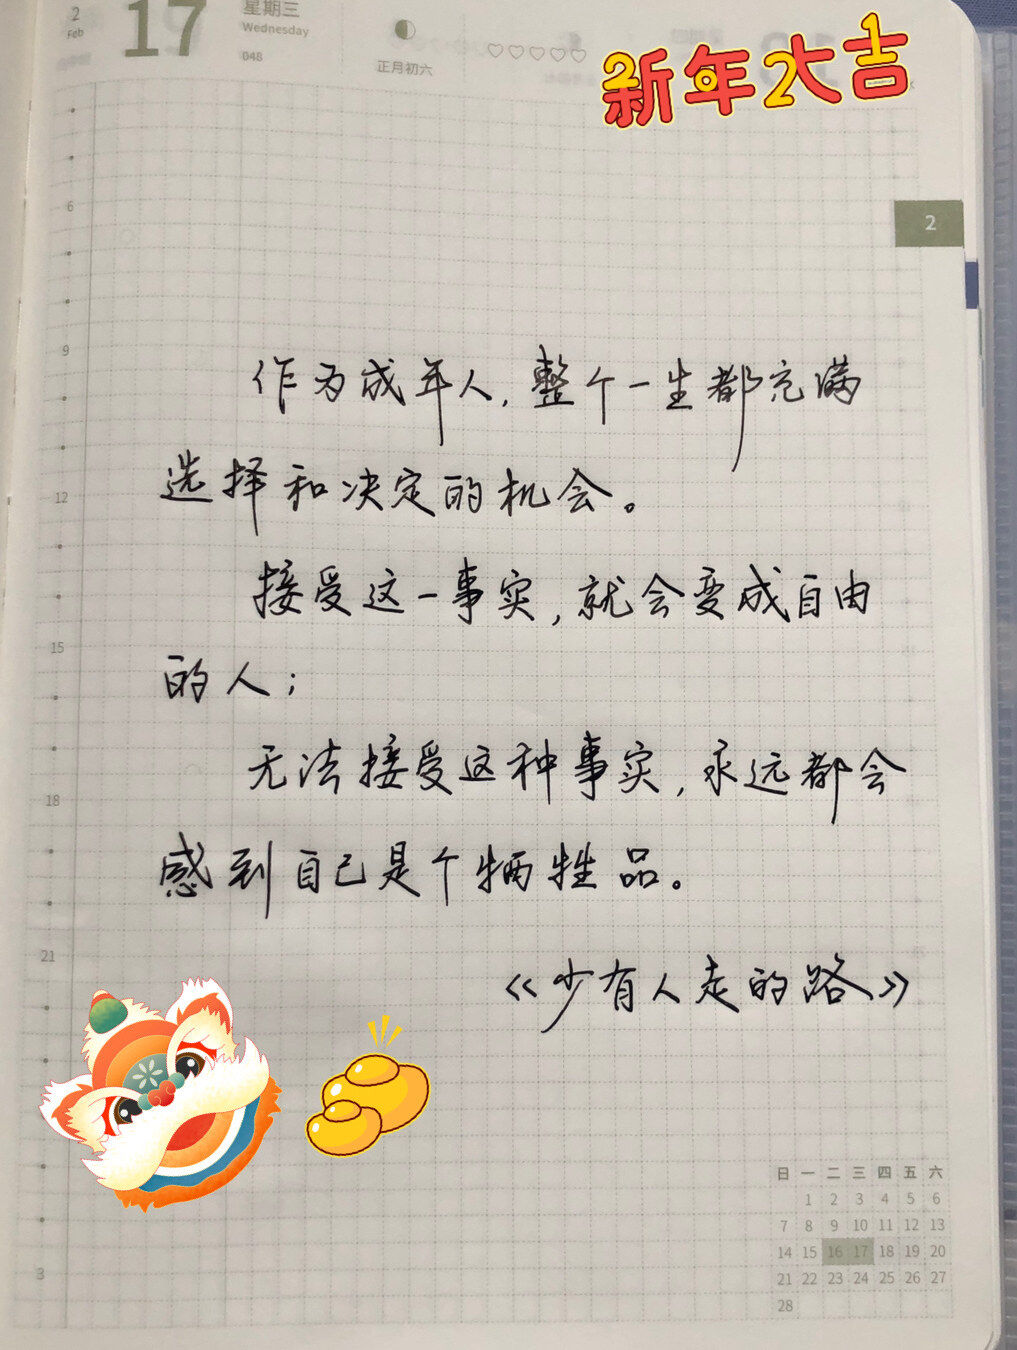 2
Feb
17
星期三
Wednesday
048
正月初六
新年大吉
2021
2
6
9
12
15
18
21
3
作为成年人,整个一生都充满
选择和决定的机会。
接受这一事实,就会变成自由
的人;
无法接受这种事实,永远都会
感到自己是个牺牲品。
《少有人走的路》
日 一 二 三 四 五 六
1 2 3 4 5 6
7 8 9 10 11 12 13
14 15 16 17 18 19 20
21 22 23 24 25 26 27
28